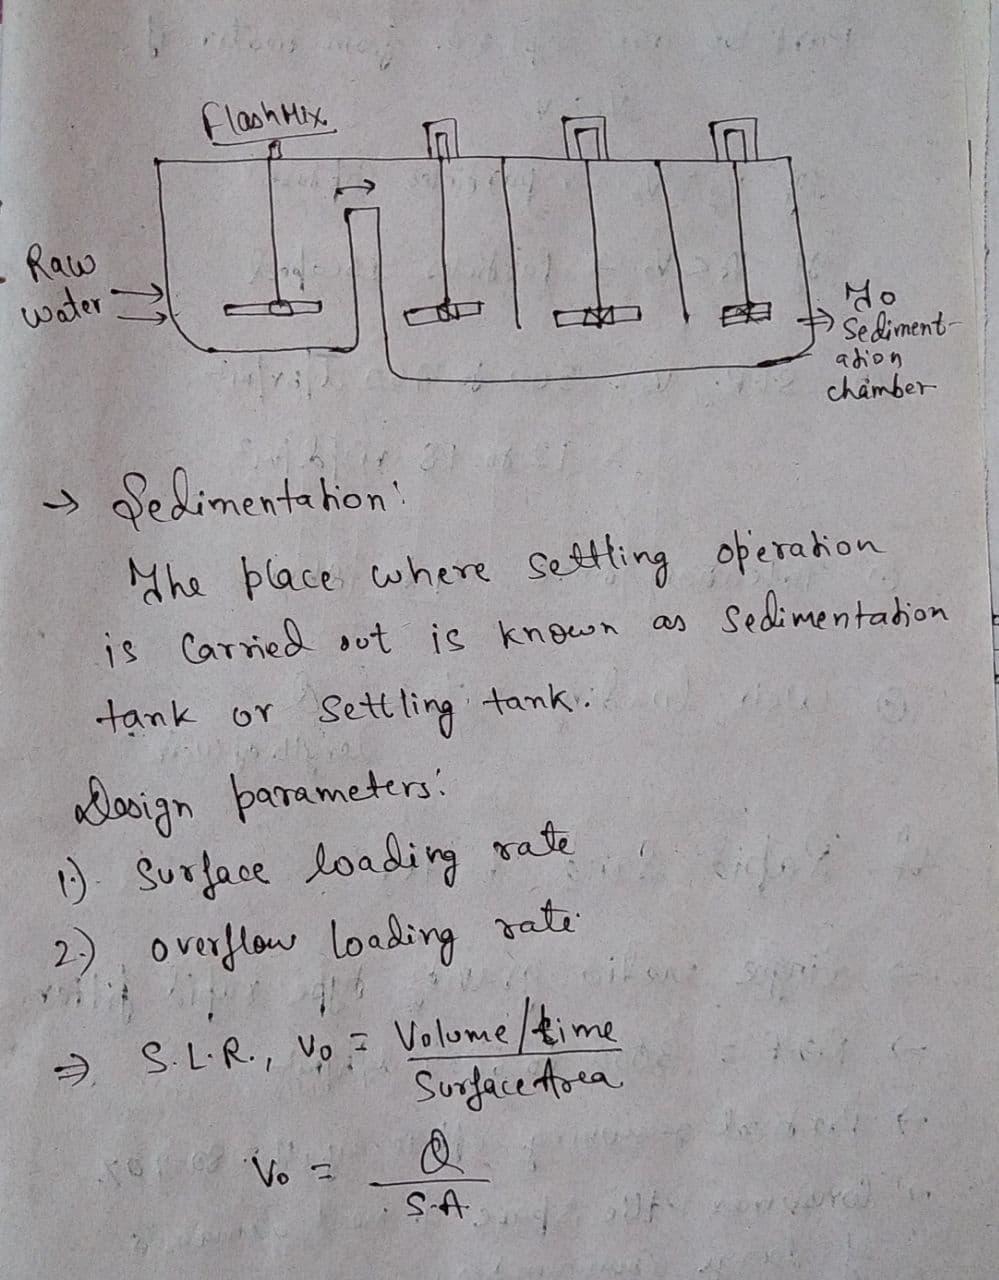 Flash Mix
Raw
water
To
Sediment-
ation
chamber
→ Sedimentation:
The place where settling operation
is Carried out is known as Sedimentation
tank or Settling tank.
Design parameters:
1.) Surface loading rate
2.) overflow loading rate
⇒ S.L.R., Vo = Volume/time
Surface Area
Vo = Q
S.A.